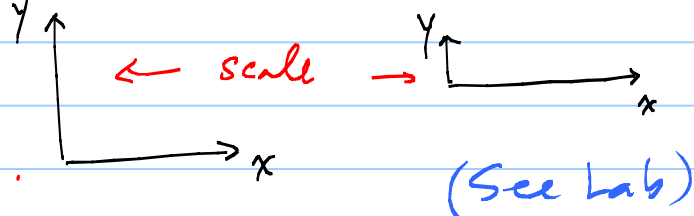 Y
Y
← scale →
x
x
(See Lab)